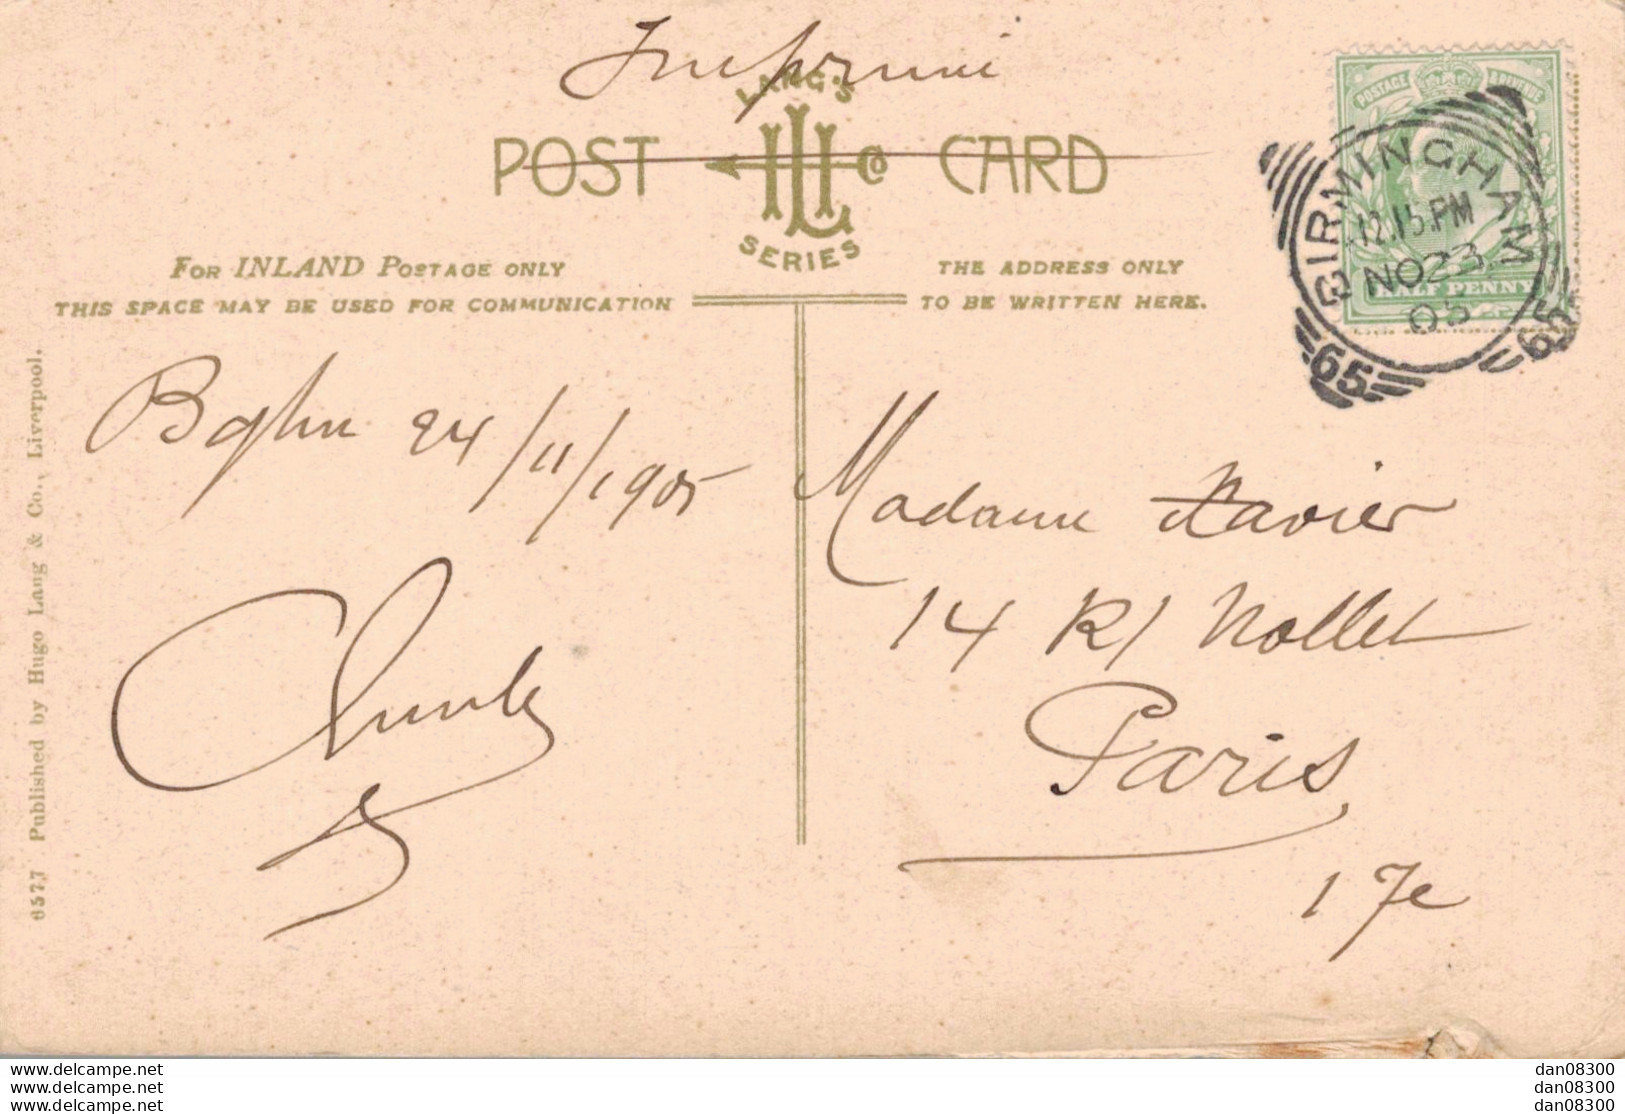 Imprimé
LANG'S
POST CARD
SERIES
POSTAGE & REVENUE
BIRMINGHAM
12.15.PM
NO 23
05
65
65
HALF PENNY
FOR INLAND POSTAGE ONLY
THIS SPACE MAY BE USED FOR COMMUNICATION
THE ADDRESS ONLY
TO BE WRITTEN HERE.
6577 Published by Hugo Lang & Co., Liverpool.
Bghm 24/11/1905
Madame Xavier
14 R/ Nollet
Paris
17e
www.delcampe.net
www.delcampe.net
www.delcampe.net
dan08300
dan08300
dan08300